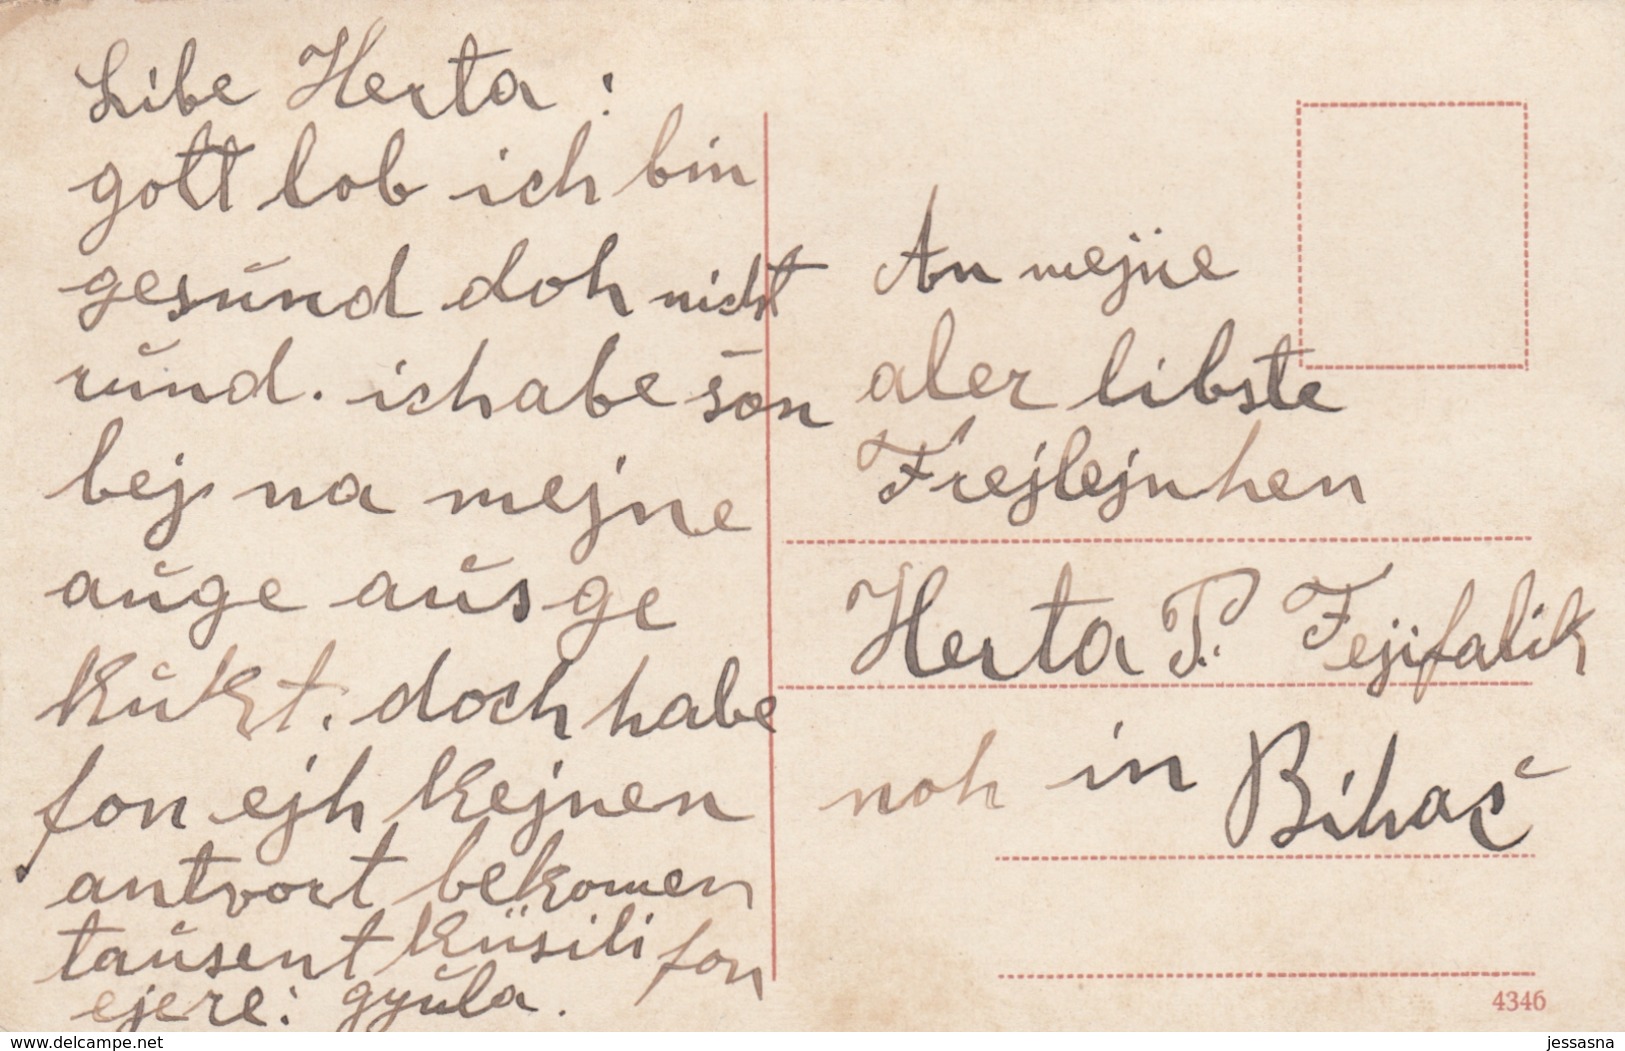 Libe Herta:
gott lob ich bin
gesund doh nicht
rund. ich habe šon
bej na mejne
auge aus ge
kukt. doch habe
fon ejh kejnen
antvort bekomen
tausent küsili fon
ejere: gyula.
An mejne
aler libste
Frejlejnhen
Herta P. Fejifalik
noh in Bihač
4346
www.delcampe.net
jessasna